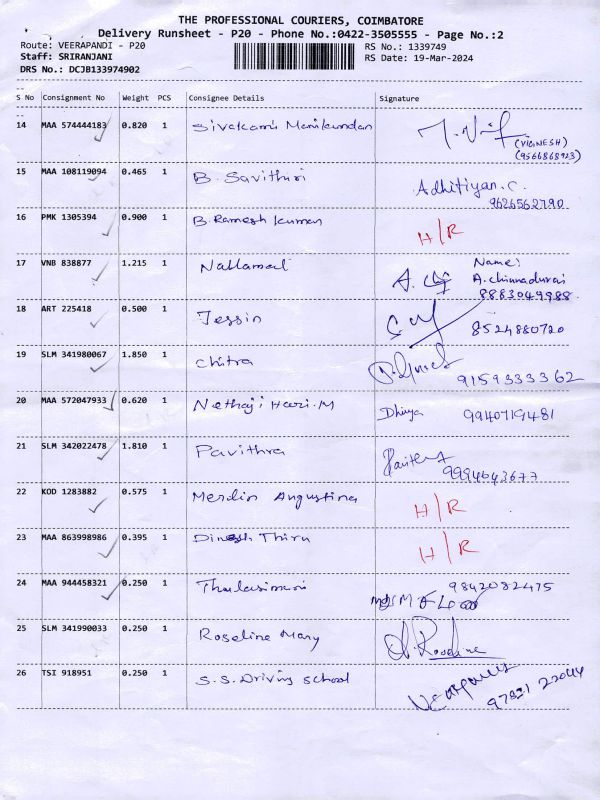 THE PROFESSIONAL COURIERS, COIMBATORE
Delivery Runsheet - P20 - Phone No.:0422-3505555 - Page No.:2
Route: VEERAPANDI - P20 RS No.: 1339749
Staff: SRIRANJANI RS Date: 19-Mar-2024
DRS No.: DCJB133974902
S No Consignment No Weight PCS Consignee Details Signature
14 MAA 574444183 0.820 1 Sivakami Manikundan
(VIGINESH)
(9566868923)
15 MAA 108119094 0.465 1 B. Savithiri Adhitiyan.C.
9626562790
16 PMK 1305394 0.900 1 B. Ramesh kumar H/R
17 VNB 838877 1.215 1 Name:
A. chinnadurai
8883049988
18 ART 225418 0.500 1 Jessin 8524880720
19 SLM 341980067 1.850 1 Chitra
9159333362
20 MAA 572047933 0.620 1 Nethaji Hari.M Dhivya 9940719481
21 SLM 342022478 1.810 1 Pavithra
9994643677
22 KOD 1283882 0.575 1 Merdin Angustina H/R
23 MAA 863998986 0.395 1 Dinesh Thiru H/R
24 MAA 944458321 0.250 1 9842082475
25 SLM 341990033 0.250 1 Roseline Mary Roseline
26 TSI 918951 0.250 1 S.S. Driving School